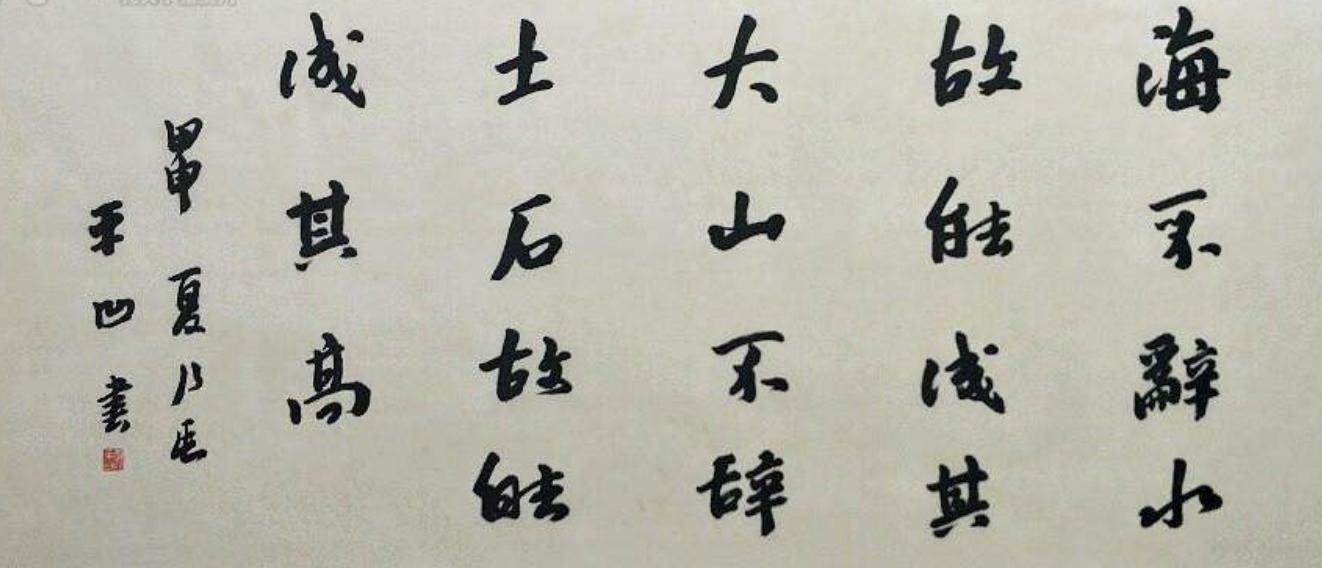 海不辭水
故能成其
大山不辞
土石故能
成其高
甲申夏
平凹書